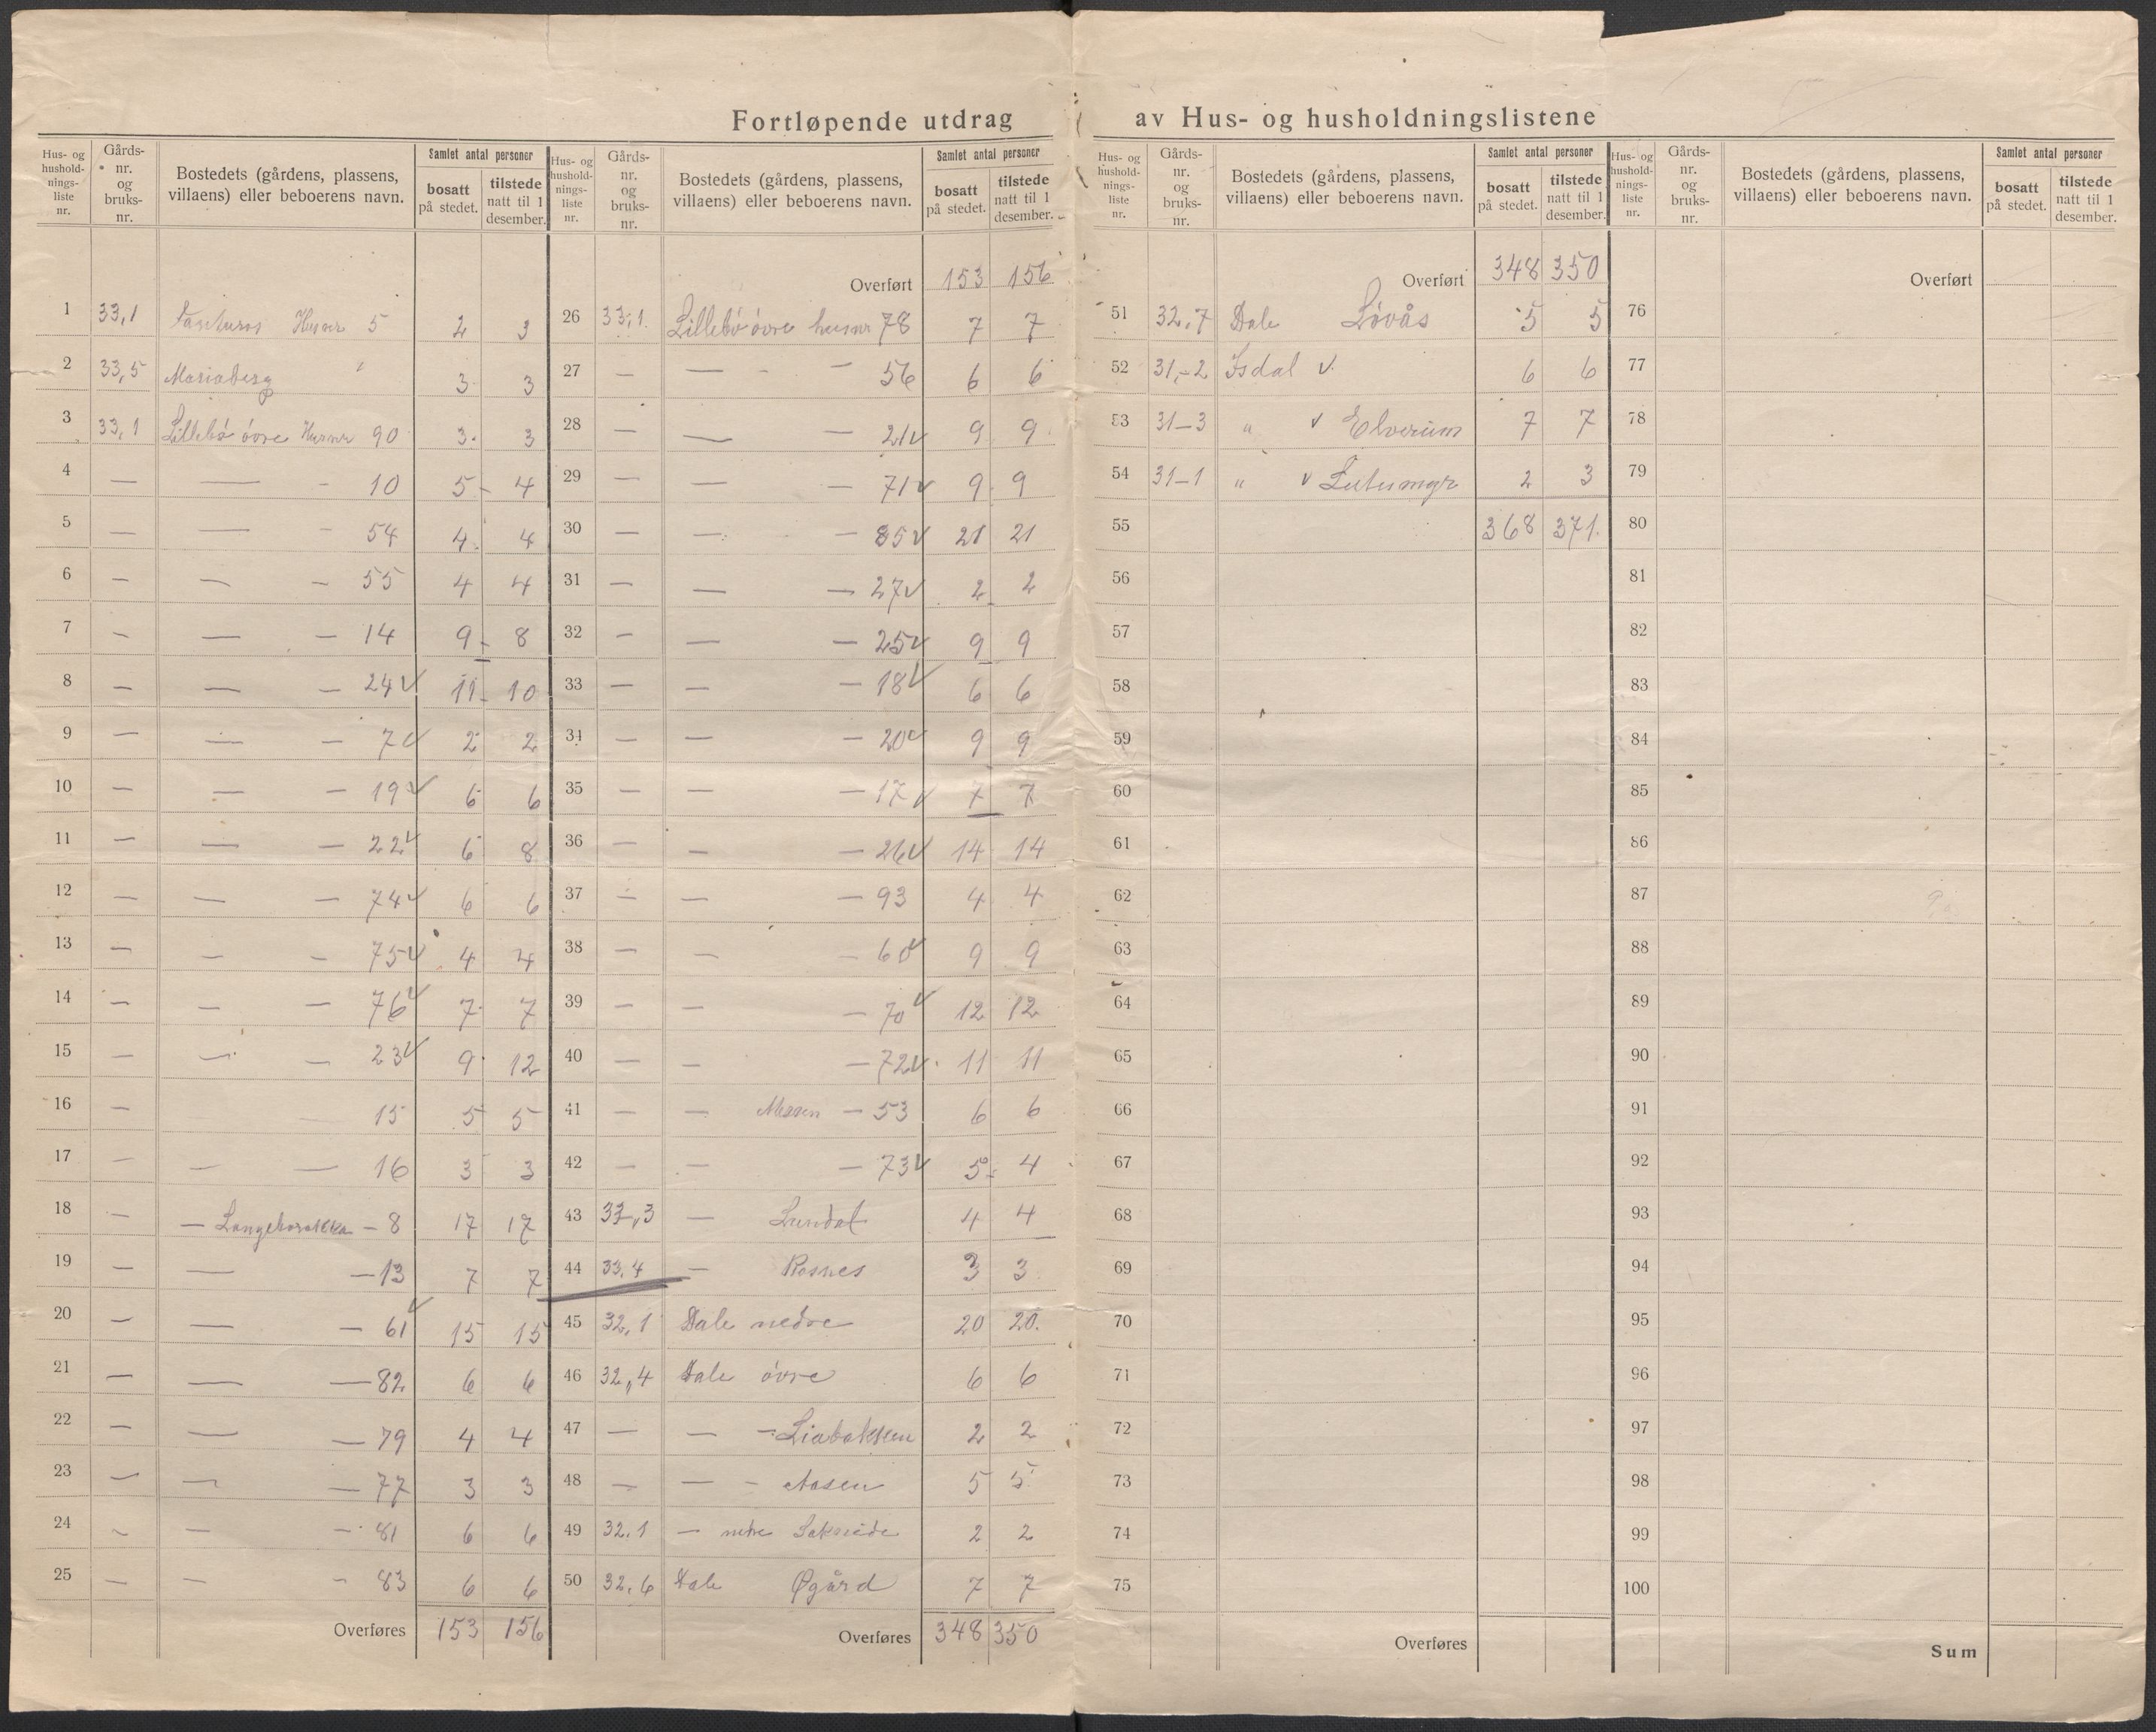 Fortløpende utdrag av Hus- og husholdningslistene
Hus- og hushold- nings- liste nr. | Gårds- nr. og bruks- nr. | Bostedets (gårdens, plassens, villaens) eller beboerens navn. | Samlet antal personer | bosatt på stedet. | tilstede natt til 1 desember.
1 33,1 Husnr 5 2 3
2 33,5 Mariaberg " 3 3
3 33,1 Lillebö övre Husnr 90 3 3
4 — — - 10 5 - 4
5 — — - 54 4 4
6 — — — 55 4 4
7 — — — 14 9 - 8
8 — — — 24 ✓ 11 - 10
9 — — — 7 ✓ 2 2
10 — — — 19 ✓ 6 6
11 — — — 22 ✓ 6 8
12 — — — 74 ✓ 6 6
13 — — — 75 ✓ 4 4
14 — — — 76 ✓ 7 7
15 — — — 23 ✓ 9 12
16 — — 15 5 5
17 — — — 16 3 3
18 — — - 8 17 17
19 — — — 13 7 7
20 — — — 61 ✓ 15 15
21 — — — 82 6 6
22 — — — 79 4 4
23 — — — 77 3 3
24 — — — 81 6 6
25 — — — 83 6 6
Overføres 153 156
Hus- og hushold- nings- liste nr. | Gårds- nr. og bruks- nr. | Bostedets (gårdens, plassens, villaens) eller beboerens navn. | Samlet antal personer | bosatt på stedet. | tilstede natt til 1 desember.
Overført 153 156
26 33,1 Lillebö övre husnr 78 7 7
27 — — - — 56 6 6
28 — — — 21 ✓ 9 9
29 — — — 71 ✓ 9 9
30 — — — 85 ✓ 21 21
31 — — — 27 ✓ 2 2
32 — — — 25 ✓ 9 9
33 — — — 18 ✓ 6 6
34 — — — 20 ✓ 9 9
35 — — — 17 ✓ 7 7
36 — — — 26 ✓ 14 14
37 — — — 93 4 4
38 — — — 60 ✓ 9 9
39 — — — 70 ✓ 12 12
40 — — — 72 ✓ 11 11
41 — — Messen — 53 6 6
42 — — — 73 ✓ 5 4
43 33,3 — Lundal 4 4
44 33,4 — Rosnes 3 3
45 32,1 Dale nedre 20 20
46 32,4 Dale övre 6 6
47 — — - Liabakken 2 2
48 — — - Aasen 5 5
49 32.1 — nedre 2 2
50 32,6 Dale Øgård 7 7
Overføres 348 350
Hus- og hushold- nings- liste nr. | Gårds- nr. og bruks- nr. | Bostedets (gårdens, plassens, villaens) eller beboerens navn. | Samlet antal personer | bosatt på stedet. | tilstede natt til 1 desember.
Overført 348 350
51 32,7 Dale Lövås 5 5
52 31,-2 Isdal ✓ 6 6
53 31-3 " ✓ Elverum 7 7
54 31-1 " ✓ 2 3
55 368 371.
56
57
58
59
60
61
62
63
64
65
66
67
68
69
70
71
72
73
74
75
Overføres
Hus- og hushold- nings- liste nr. | Gårds- nr. og bruks- nr. | Bostedets (gårdens, plassens, villaens) eller beboerens navn. | Samlet antal personer | bosatt på stedet. | tilstede natt til 1 desember.
Overført
76
77
78
79
80
81
82
83
84
85
86
87
88
89
90
91
92
93
94
95
96
97
98
99
100
Sum